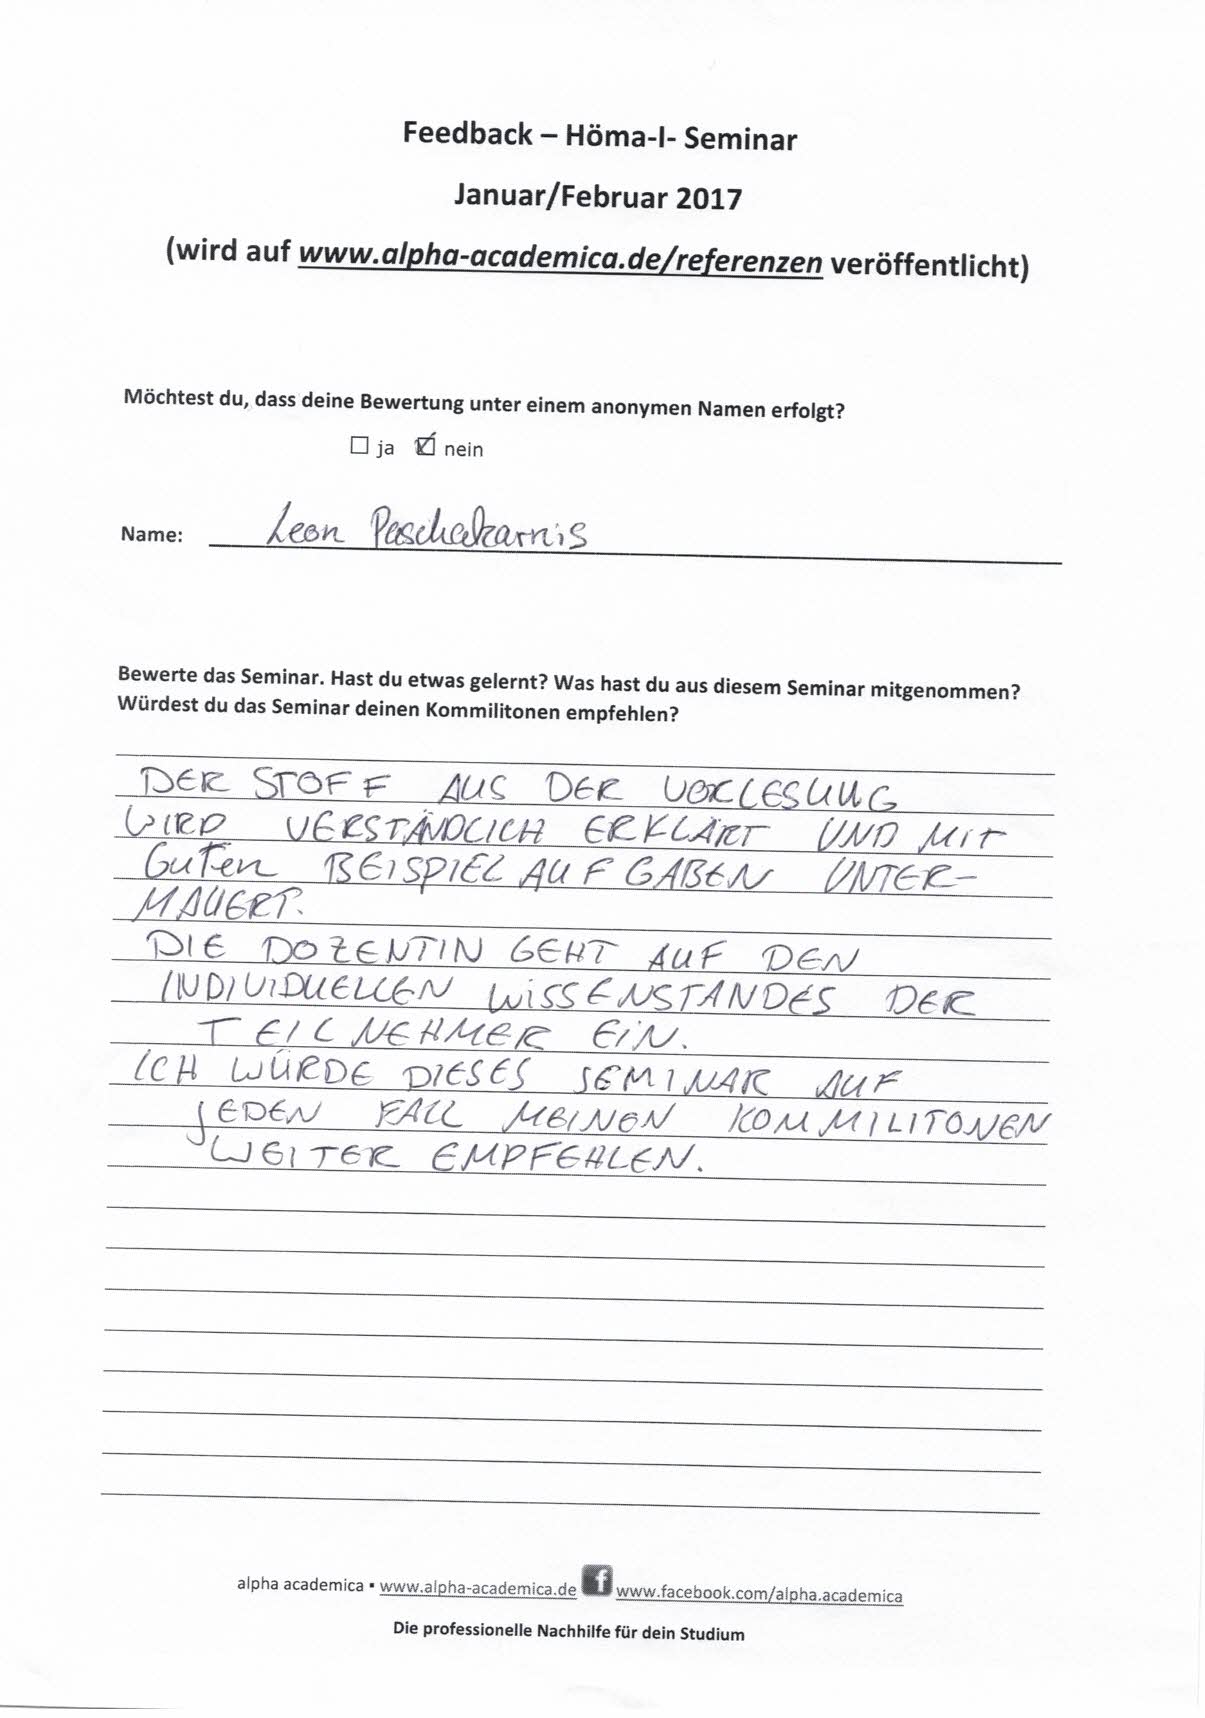 Feedback – Höma-I- Seminar
Januar/Februar 2017
(wird auf www.alpha-academica.de/referenzen veröffentlicht)
Möchtest du, dass deine Bewertung unter einem anonymen Namen erfolgt?
☐ ja ☑ nein
Name: Leon Paschakarnis
Bewerte das Seminar. Hast du etwas gelernt? Was hast du aus diesem Seminar mitgenommen?
Würdest du das Seminar deinen Kommilitonen empfehlen?
DER STOFF AUS DER VORLESUNG
WIRD VERSTÄNDLICH ERKLÄRT UND MIT
GUTEN BEISPIELAUFGABEN UNTER-
MAUERT.
DIE DOZENTIN GEHT AUF DEN
INDIVIDUELLEN WISSENSTANDES DER
TEILNEHMER EIN.
ICH WÜRDE DIESES SEMINAR AUF
JEDEN FALL MEINEN KOMMILITONEN
WEITER EMPFEHLEN.
alpha academica ▪ www.alpha-academica.de f www.facebook.com/alpha.academica
Die professionelle Nachhilfe für dein Studium